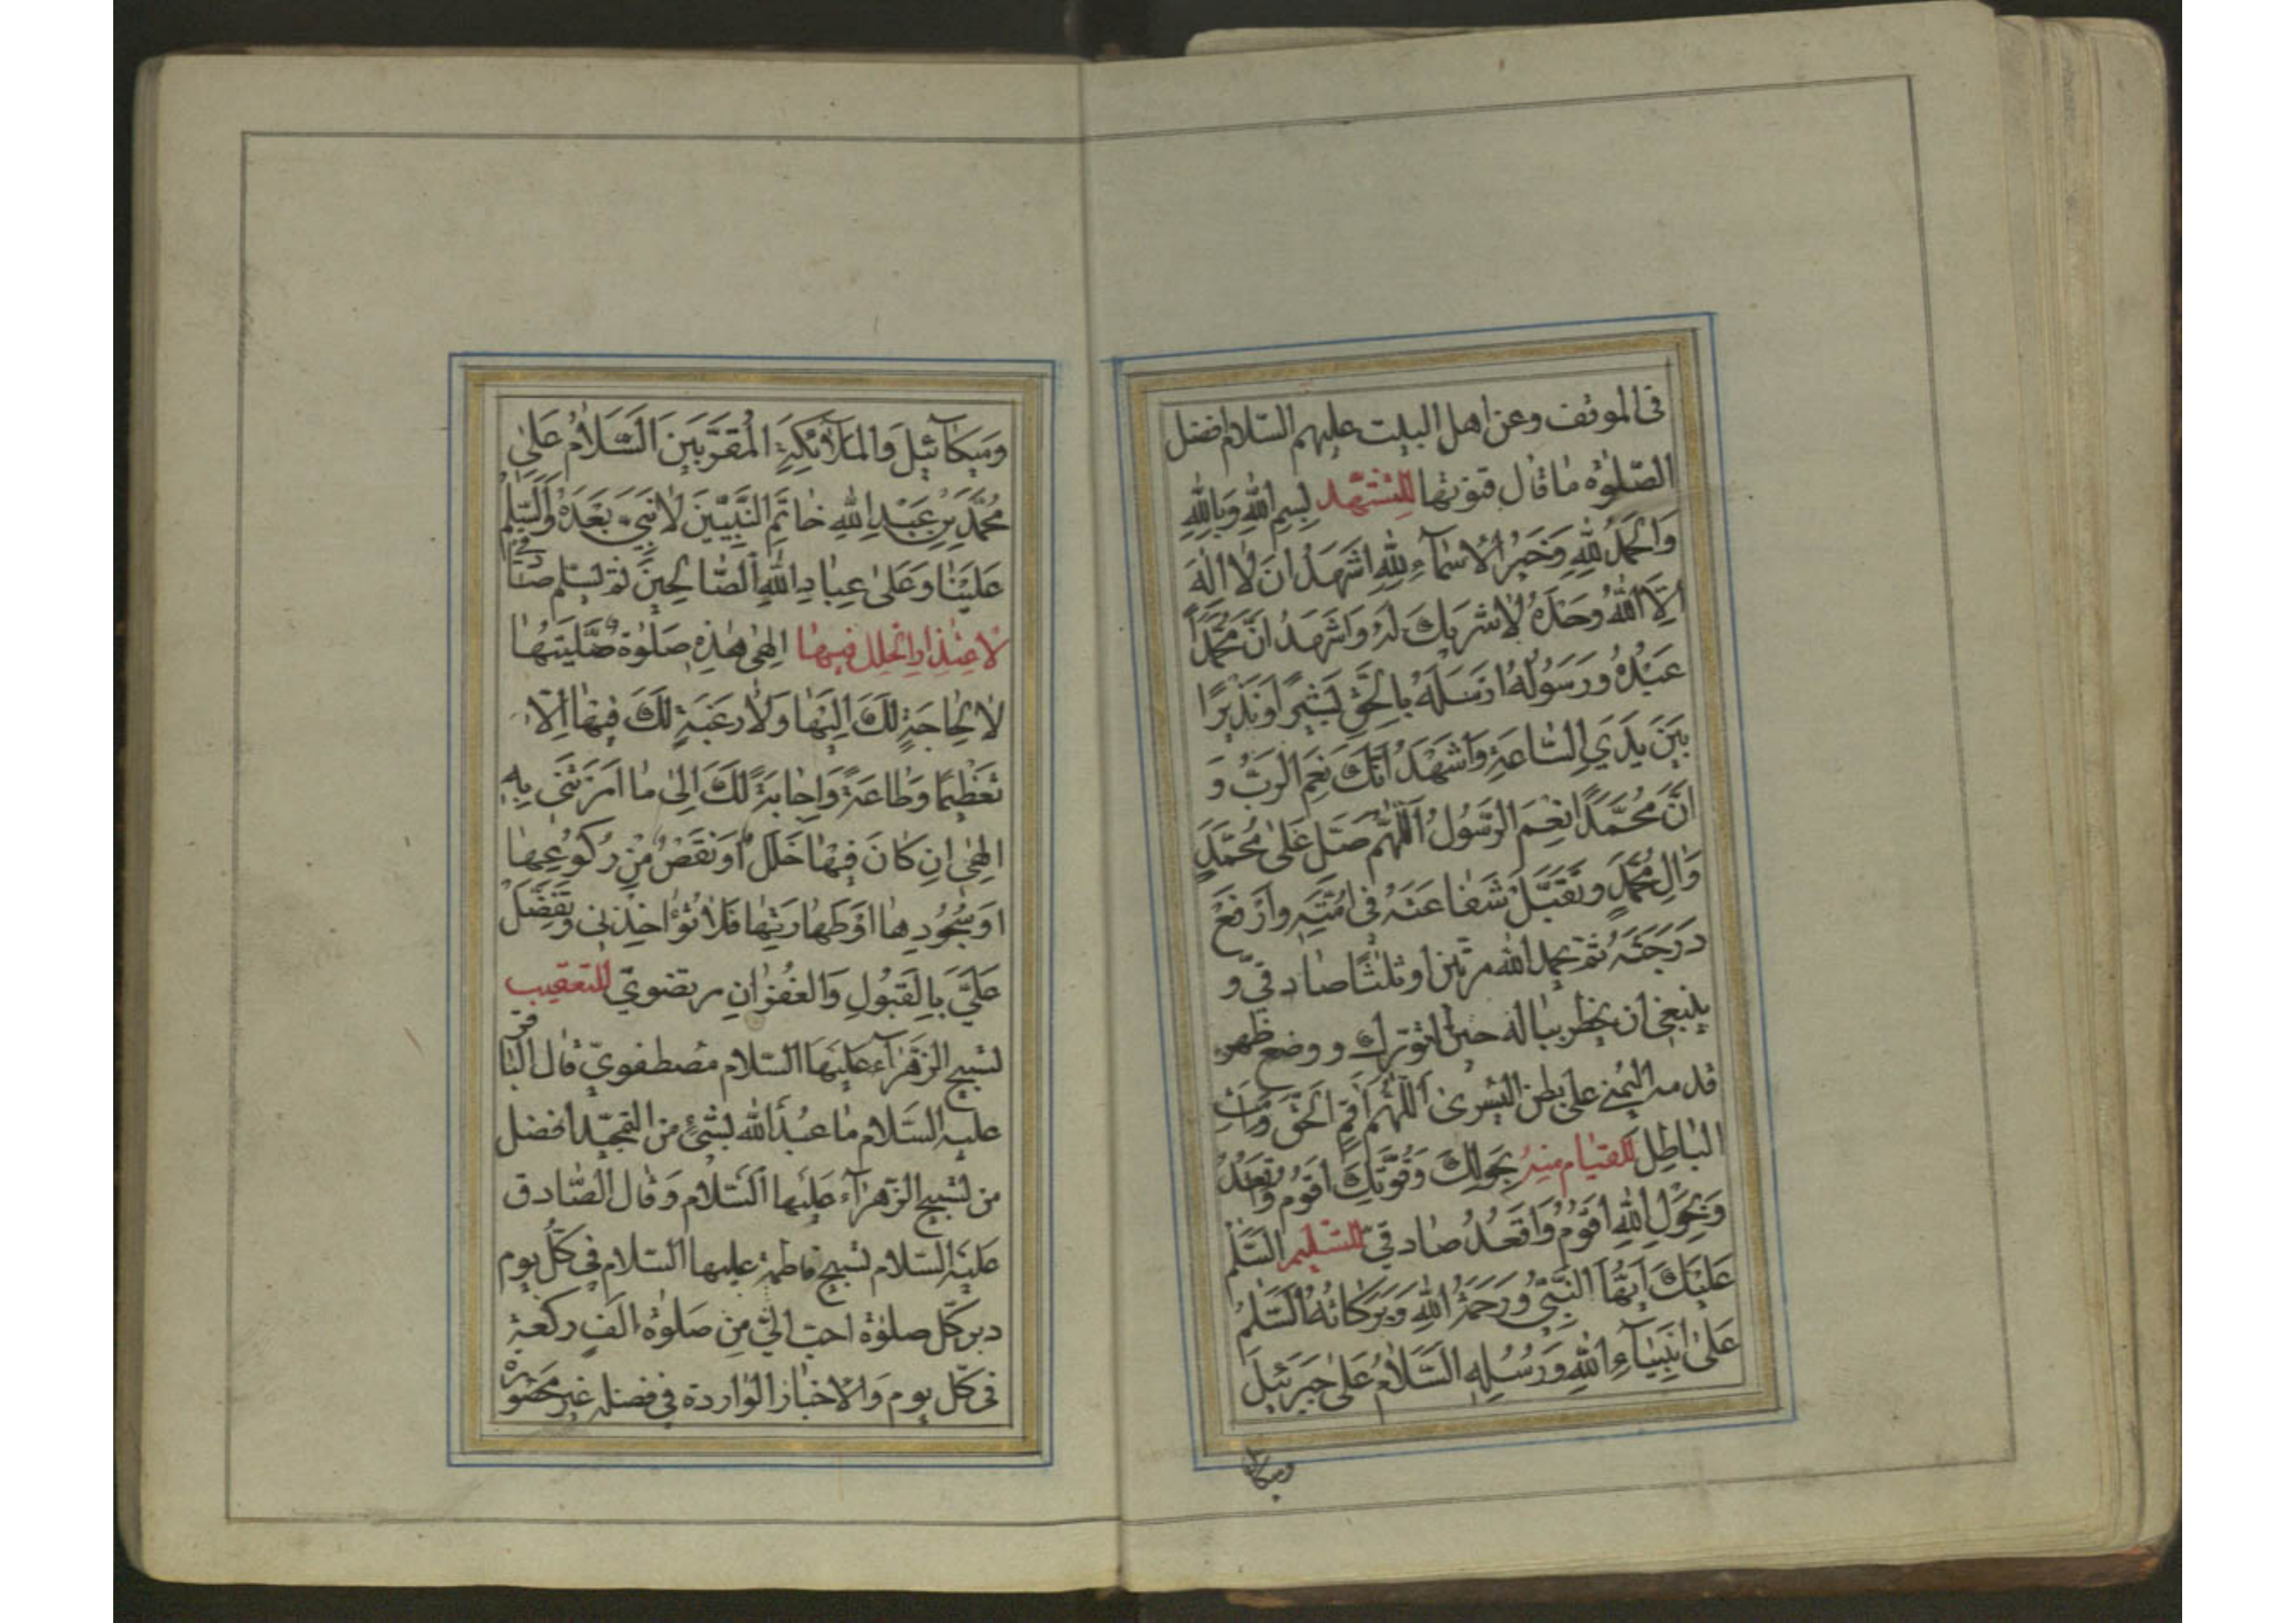 فى الموقف وعن اهل البيت عليهم السلام افضل
الصلوة ما قال قنوتها للتشهد بسم الله وبالله
وَالحَمدُ لِلّٰهِ وَخَيرُ الاَسمآءِ لِلّٰهِ اَشهَدُ اَن لا اله
اِلّا اللهُ وَحدَهُ لا شَريكَ لَهُ وَاَشهَدُ اَنَّ مُحَمَّداً
عَبدُهُ وَرَسُولُهُ اَرسَلَهُ بِالحَقِّ بَشيراً وَنَذيراً
بَينَ يَدَيِ السّاعَةِ وَاَشهَدُ اَنَّكَ نِعمَ الرَّبُّ وَ
اَنَّ مُحَمَّداً نِعمَ الرَّسُولُ اَللّٰهُمَّ صَلِّ عَلىٰ مُحَمَّدٍ
وَالِ مُحَمَّدٍ وَتَقَبَّل شَفاعَتَهُ فى اُمَّتِهِ وَارفَع
دَرَجَتَهُ ثم يحمد الله مرتين او ثلثا صادقيّ و
ينبغى ان يخطر بباله حين التورك ووضع ظهر
قدمه اليمنى على بطن اليسرى اَللّٰهُمَّ اَقِمِ الحَقَّ وَاَمِتِ
الباطِلَ للقيام منه بِحَولِكَ وَقُوَّتِكَ اَقُومُ وَاَقعُدُ
وَبِحَولِ اللهِ اَقُومُ وَاَقعُدُ صادقيّ للتسليم السَّلٰمُ
عَلَيكَ اَيُّهَا النَّبِىُّ وَرَحمَةُ اللهِ وَبَرَكاتُهُ اَلسَّلٰمُ
عَلىٰ اَنبِيآءِ اللهِ وَرُسُلِهِ السَّلامُ عَلىٰ جَبرَئيلَ
وميكا
وَميكآئيلَ وَالمَلآئِكَةِ المُقَرَّبينَ اَلسَّلامُ عَلىٰ
مُحَمَّدِ بنِ عَبدِ اللهِ خاتَمِ النَّبِيّينَ لا نَبِىَّ بَعدَهُ وَالسَّلٰمُ
عَلَينا وَعَلىٰ عِبادِ اللهِ الصّالِحينَ ثم يسلم صادقي
لاعتذار الخلل فيها اِلٰهى هٰذِهِ صَلوٰةٌ صَلَّيتُها
لا لِحاجَةٍ لَكَ اِلَيها وَلا رَغبَةٍ لَكَ فيها اِلّا
تَعظيماً وَطاعَةً وَاِجابَةً لَكَ اِلىٰ ما اَمَرتَنى بِهِ
اِلٰهى اِن كانَ فيها خَلَلٌ اَو نَقصٌ مِن رُكُوعِها
اَو سُجُودِها اَو طَهارَتِها فَلا تُؤاخِذنى وَتَفَضَّل
عَلَىَّ بِالقَبُولِ وَالغُفرانِ مرتضويّ للتعقيب
تسبيح الزهرآء عليها السلام مصطفويّ قال الباقر
عليه السلام ما عبد الله بشئ من التمجيد افضل
من تسبيح الزهرآء عليها السلام وقال الصادق
عليه السلام تسبيح فاطمة عليها السلام فى كل يوم
دبر كل صلوة احب الىّ من صلوة الف ركعة
فى كل يوم والاخبار الواردة فى فضله غير محصورة